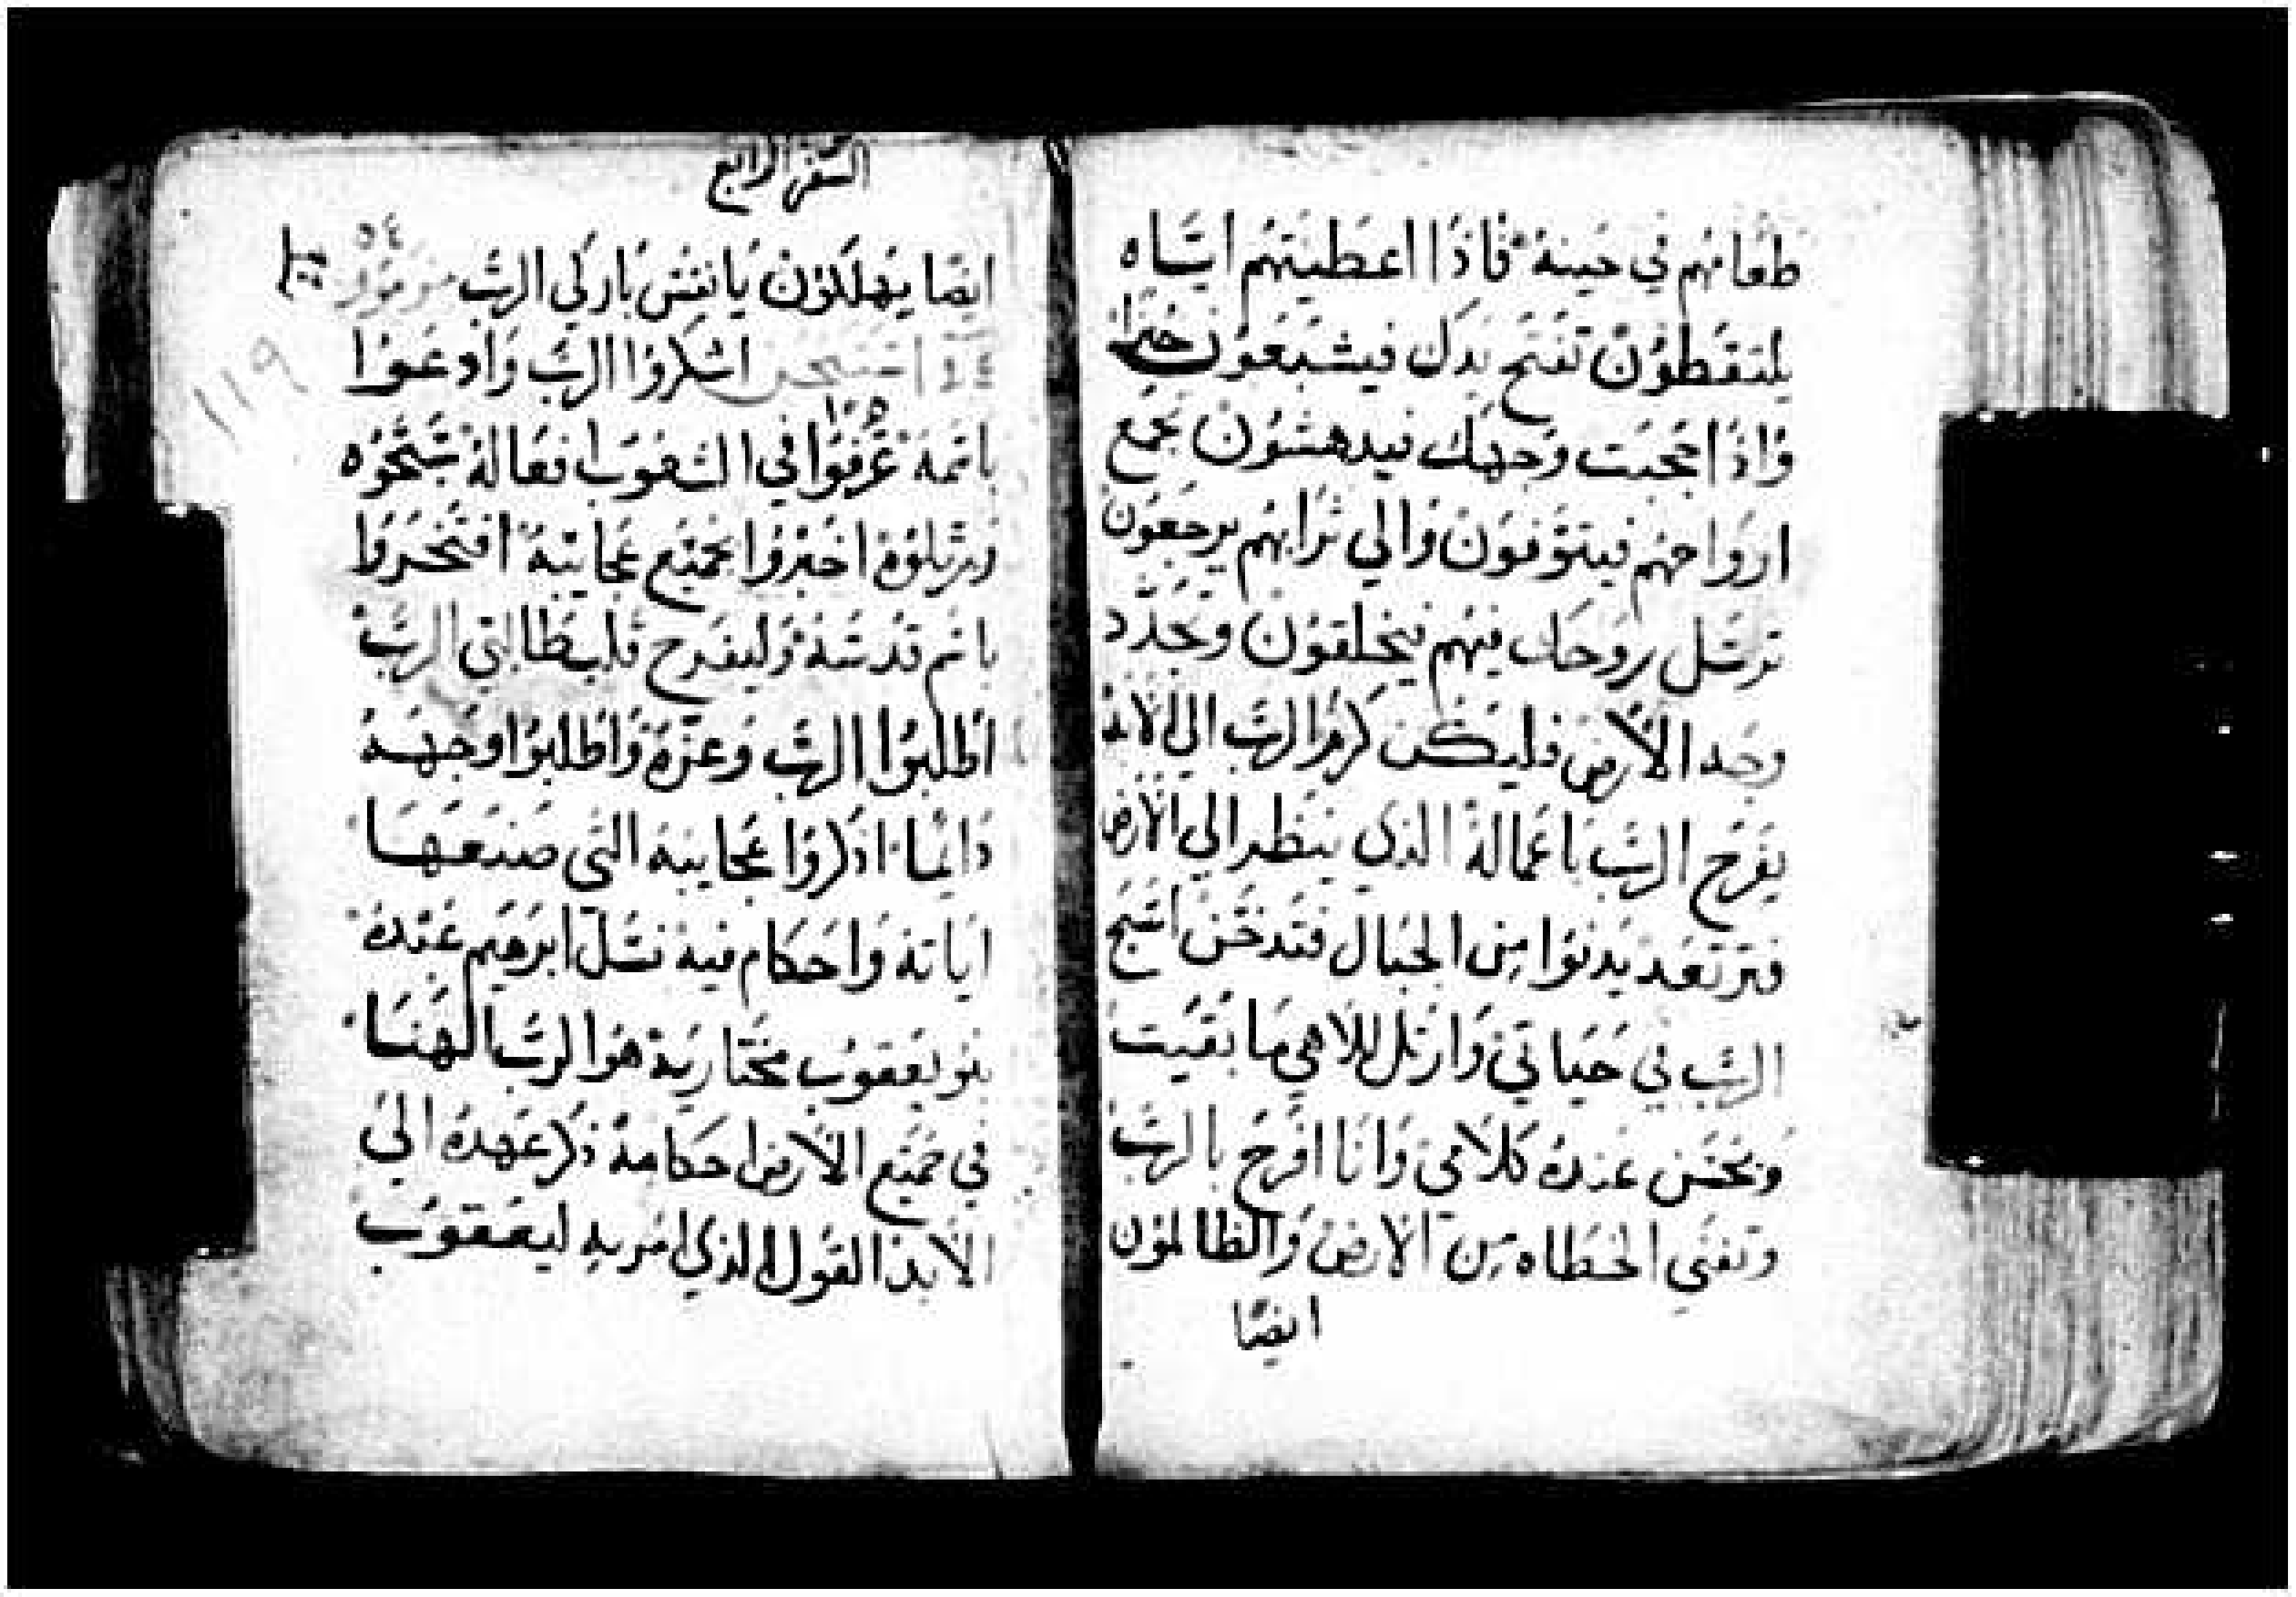 طعامهم في حينه فاذا اعطيتهم اياه
يلتقطون تفتح يدك فيشبعون خيرا
واذا حجبت وجهك فيدهشون تجمع
ارواحهم فيتوفون والي ترابهم يرجعون
ترسل روحك فيهم فيخلقون وتجدد
وجه الارض فليكن كرم الرب الي الابد
يفرح الرب باعماله الذي ينظر الي الارض
فترتعد يدنوا من الجبال فتدخن اسبح
الرب في حياتي وارتل للاهي ما بقيت
ويحسن عنده كلامي وانا افرح بالرب
وتفني الخطاه من الارض والظالمون
ايضا
السفر الرابع
ايضا يهللون يا نفس باركي الرب مزمور
اشكروا الرب وادعوا
باسمه عرفوا في الشعوب افعاله سبحوه
ورتلوه اخبروا بجميع عجايبه افتخروا
باسم قدسه وليفرح قلب طالبي الرب
اطلبوا الرب وعزه واطلبوا وجهه
دايما اذكروا عجايبه التي صنعها
اياته واحكام فيه نسل ابرهيم عبده
بنو يعقوب مختاريه هو الرب الهنا
في جميع الارض احكامه ذكر عهده الي
الابد القول الذي امر به ليعقوب
١١٩